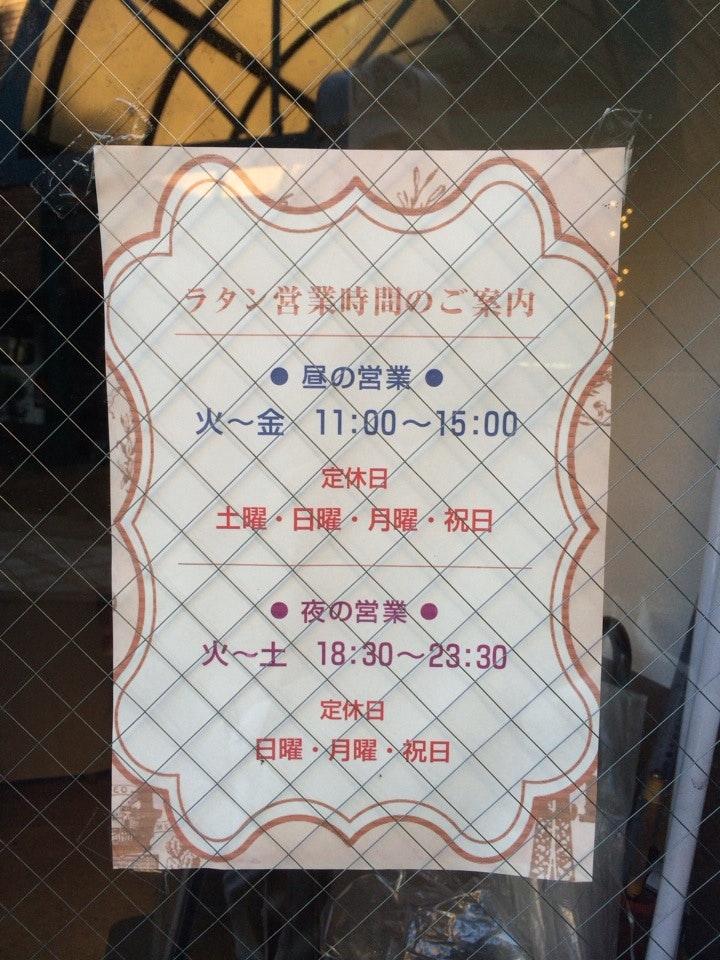 ラタン営業時間のご案内
● 昼の営業 ●
火～金 11:00～15:00
定休日
土曜・日曜・月曜・祝日
● 夜の営業 ●
火～土 18:30～23:30
定休日
日曜・月曜・祝日